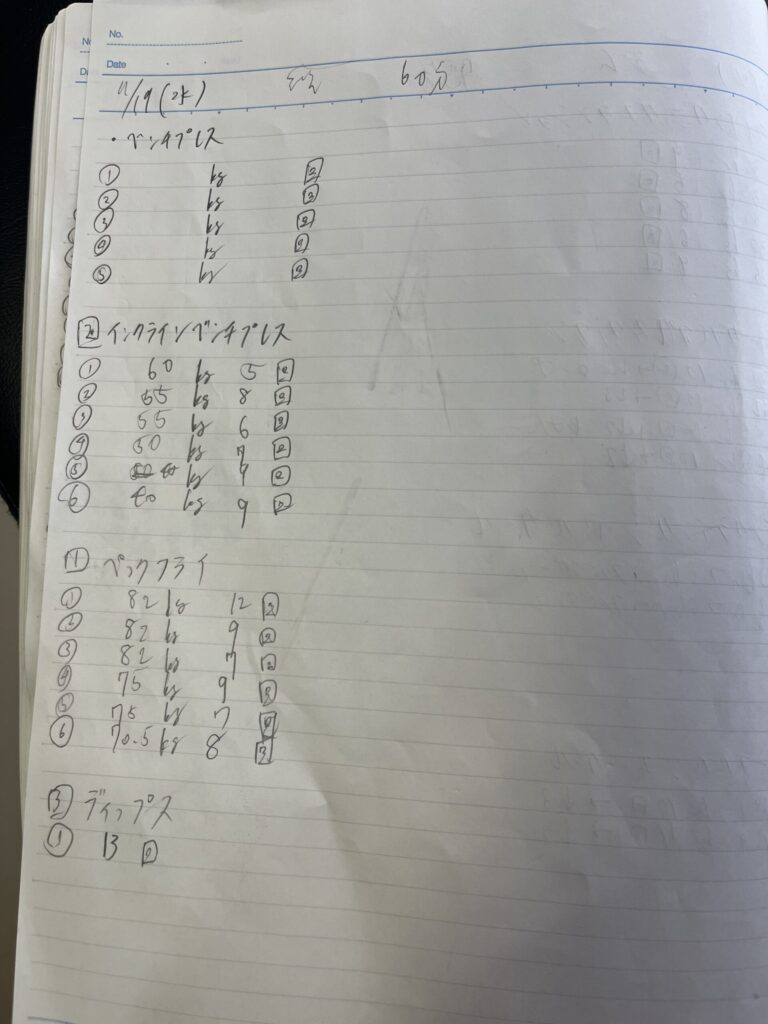 No.
Date
11/19(水) 60分
・ベンチプレス
① kg 2
② kg 3
③ kg 2
④ kg 2
⑤ kg 2
2 インクラインベンチプレス
① 60 kg 5 2
② 55 kg 8 2
③ 55 kg 6 3
④ 50 kg 7 2
⑤ 40 kg 9 2
⑥ 40 kg 9 2
1 ペックフライ
① 82 kg 12 2
② 82 kg 9 2
③ 82 kg 7 2
④ 75 kg 9 2
⑤ 75 kg 7 2
⑥ 70.5 kg 8 3
3 ディップス
① 13 2